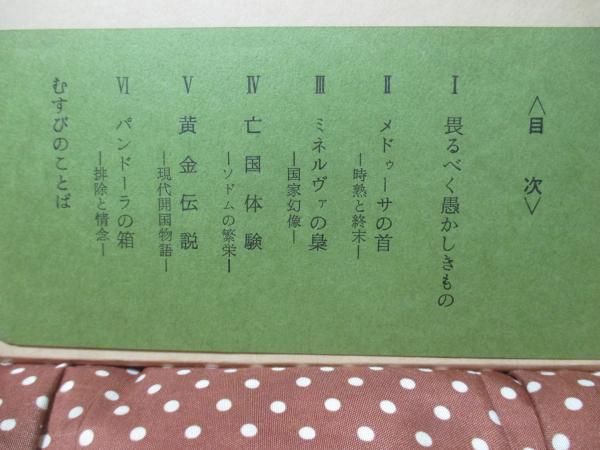 〈目次〉
Ⅰ 畏るべく愚かしきもの
Ⅱ メドゥーサの首
―時熟と終末―
Ⅲ ミネルヴァの梟
―国家幻像―
Ⅳ 亡国体験
―ソドムの繁栄―
Ⅴ 黄金伝説
―現代開国物語―
Ⅵ パンドーラの箱
―排除と情念―
むすびのことば